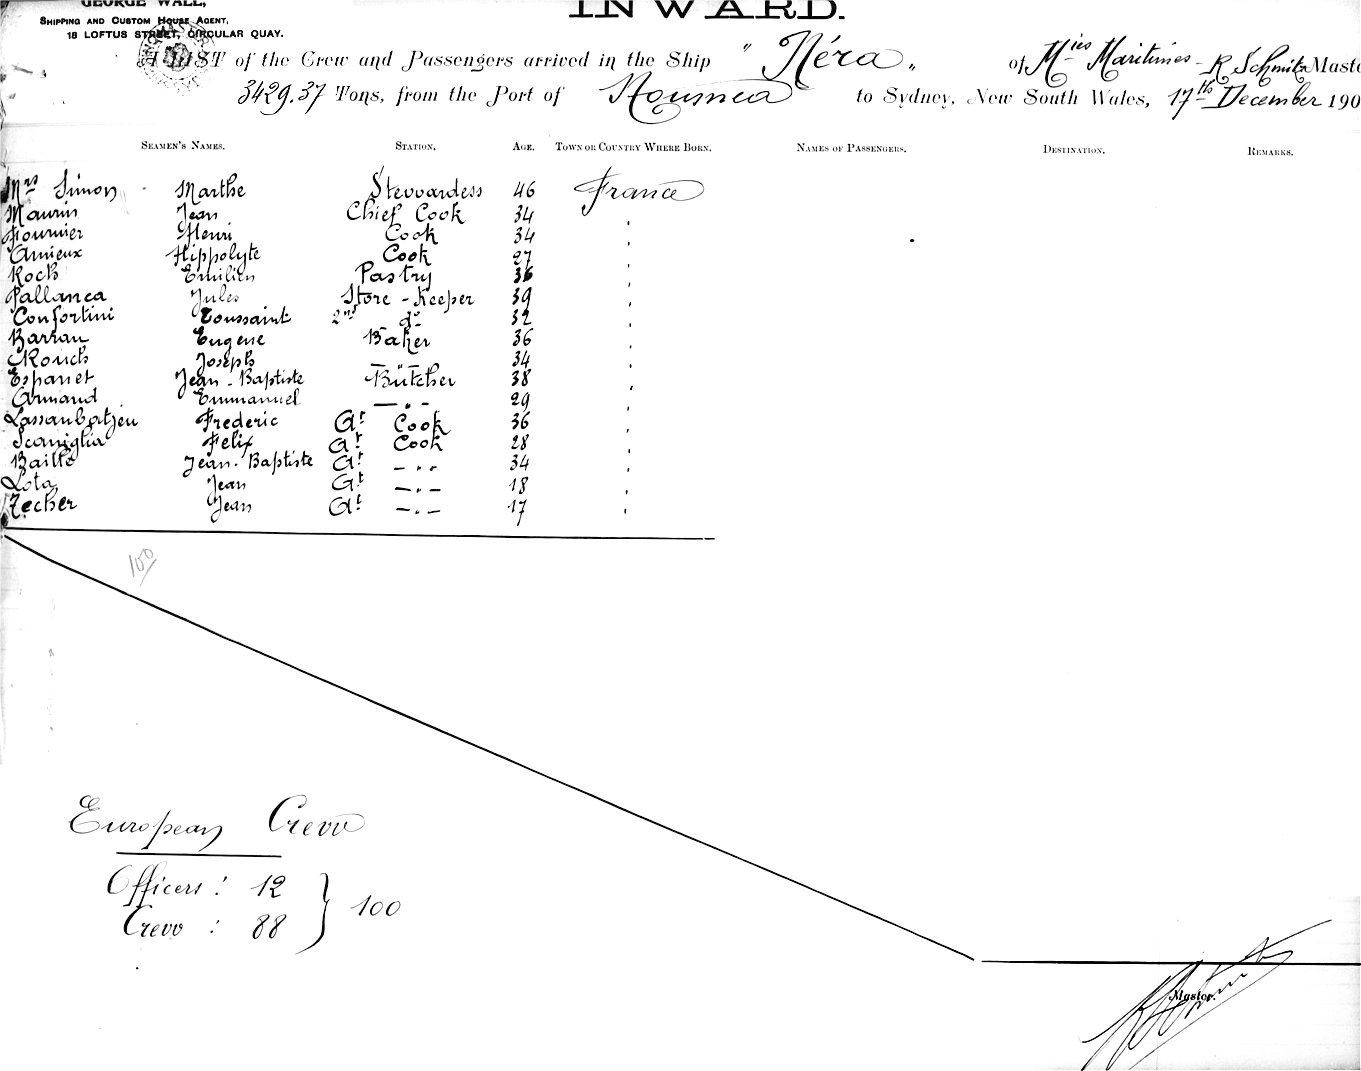 GEORGE WALL,
SHIPPING AND CUSTOM HOUSE AGENT,
18 LOFTUS STREET, CIRCULAR QUAY.
INWARD.
A LIST of the Crew and Passengers arrived in the Ship " Néra " of Mies Maritimes - R Schmitz Maste
3429.37 Tons, from the Port of Noumea to Sydney, New South Wales, 17th December 190
SEAMEN'S NAMES. STATION. AGE. TOWN OR COUNTRY WHERE BORN. NAMES OF PASSENGERS. DESTINATION. REMARKS.
Mrs Simon Marthe Stewardess 46 France
Maurin Jean Chief Cook 34 "
Fournier Henri Cook 34 "
Amieux Hippolyte Cook 27 "
Roch Emilien Pastry 36 "
Pallanca Jules Store-Keeper 39 "
Confortini Toussaint 2nd do 32 "
Barrau Eugene Baker 36 "
Rouch Joseph — " — 34 "
Espanet Jean-Baptiste Butcher 38 "
Armand Emmanuel — " — 29 "
Frederic At Cook 36 "
Scaniglia Felix At Cook 28 "
Baille Jean-Baptiste At — " — 34 "
Lota Jean At — " — 18 "
Zecher Jean At — " — 17 "
100
European Crew
Officers : 12
Crew : 88 } 100
Master.